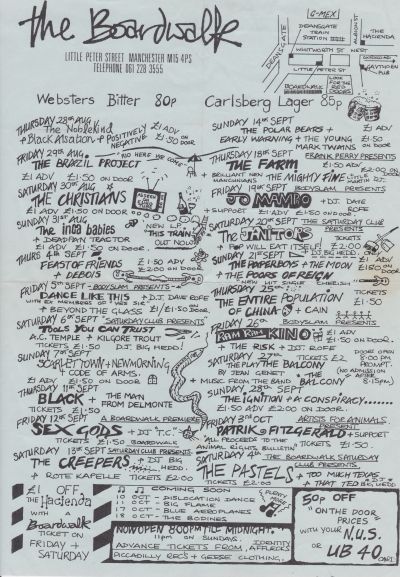 the Boardwalk
LITTLE PETER STREET MANCHESTER M15 4PS
TELEPHONE 061 228 3555
G-MEX
DEANSGATE
DEANSGATE TRAIN STATION
ALBION ST
THE HACIENDA
WHITWORTH ST WEST
LITTLE PETER ST
BOARDWALK
LOOK FOR THE RED DOORS
Websters Bitter 80p
Carlsberg Lager 85p
THURSDAY 28th AUG
The Noble Kind
+ Black Assation + POSITIVELY NEGATIVE
£1 ADV
£1.50 ON DOOR
FRIDAY 29th AUG. "NO HERE WE GOES"
THE BRAZIL PROJECT
£1 ADV £1.50 ON DOOR
SATURDAY 30th AUG
THE CHRISTIANS
£1 ADV £1.50 ON DOOR
SUNDAY 31st AUG
The inca babies
+ DEADPAN TRACTOR
£1 ADV £1.50 ON DOOR
NEW LP "THIS TRAIN" OUT NOW
THURS 4th SEPT
FEAST OF FRIENDS
+ DEBRIS
£1.50 ADV
£2.00 ON DOOR
FRIDAY 5th SEPT - BODYSLAM PRESENTS
DANCE LIKE THIS + D.J. DAVE ROFE
+ BEYOND THE GLASS £1/£1.50 DOOR
SATURDAY 6th SEPT SATURDAY CLUB PRESENTS
TOOLS YOU CAN TRUST
A.C. TEMPLE + KILGORE TROUT
TICKETS £1.50 D.J. BIG HEDD!
SUNDAY 7th SEPT
SCARLET TOWN + NEW MORNING
+ CODE OF ARMS
£1 ADV £1.50 ON DOOR
THURSDAY 11th SEPT
BLACK + THE MAN FROM DELMONTE
TICKETS £1.50
FRIDAY 12th SEPT A BOARDWALK PREMIERE
SEX GODS + D.J. "T.C."
TICKETS £1.50 BOARDWALK
SATURDAY 13th SEPT SATURDAY CLUB PRESENTS
THE CREEPERS + DJ BIG HEDD.
+ ROTE KAPELLE TICKETS £2.00
SUNDAY 14th SEPT
THE POLAR BEARS +
EARLY WARNING + THE YOUNG MARK TWAINS
£1 ADV
£1.50 ON DOOR
THURSDAY 18th SEPT FRANK PERRY PRESENTS
THE FARM
+ BRILLIANT NEW MANCUNIANS THE MIGHTY FINE
£1.50 ADV
£2.00 ON DOOR
FRIDAY 19th SEPT BODYSLAM PRESENTS
MAMBO + D.J. DAVE ROFE
+ SUPPORT £1 ADV £1.50 ON DOOR
SATURDAY 20th SEPT THE SATURDAY CLUB PRESENTS
THE JANITORS
+ POP WILL EAT ITSELF! + DJ BIG HEDD.
TICKETS £2.00
SUNDAY 21st SEPT
THE PAPERBOYS + THE MOON
+ THE POURS OF REIGN
£1 ADV
£1.50 ON DOOR
THURSDAY 25th SEPT
THE ENTIRE POPULATION OF CHINA + CAIN
TICKETS £1.50
FRIDAY 26th BODYSLAM PRESENTS
RAM RAM KINO
£1 ADV
£1.50 ON DOOR.
+ THE RISK + DJ. ROFE
SATURDAY 27th TICKETS £2
THE PLAY THE BALCONY
BY JEAN GENET
+ MUSIC FROM THE BAND BALCONY
DOORS OPEN 8:00PM PROMPT.
(NO ADMISSION AFTER 8:15PM.)
SUNDAY 28th SEPT
THE IGNITION + A CONSPIRACY......
£1.50 ADV £2.00 ON DOOR.
FRIDAY 3rd OCT ARTISTS FOR ANIMALS PRESENT
PATRIK FITZGERALD + SUPPORT
ALL PROCEEDS TO THE ANIMAL RIGHTS BULLETIN
TICKETS £1.50.
SATURDAY 4th THE BOARDWALK SATURDAY CLUB PRESENTS
THE PASTELS
TICKETS £2.00
+ TOO MUCH TEXAS
+ THAT TED BIG HEDD
£1 OFF
The Hacienda
WITH A
Boardwalk
TICKET ON
FRIDAY +
SATURDAY
COMING SOON
10 OCT - DISLOCATION DANCE
11 OCT - BIG FLAME
17 OCT - BLUE AEROPLANES
18 OCT - THE BODINES
PLENTY
NOW OPEN 8:00PM TIL MIDNIGHT.
11pm ON SUNDAYS.
ADVANCE TICKETS FROM, IDENTITY, AFFLECKS
PICCADILLY REC'S + GEESE CLOTHING.
50p OFF
"ON THE DOOR PRICES"
WITH YOUR N.U.S.
OR UB 40 CARD.